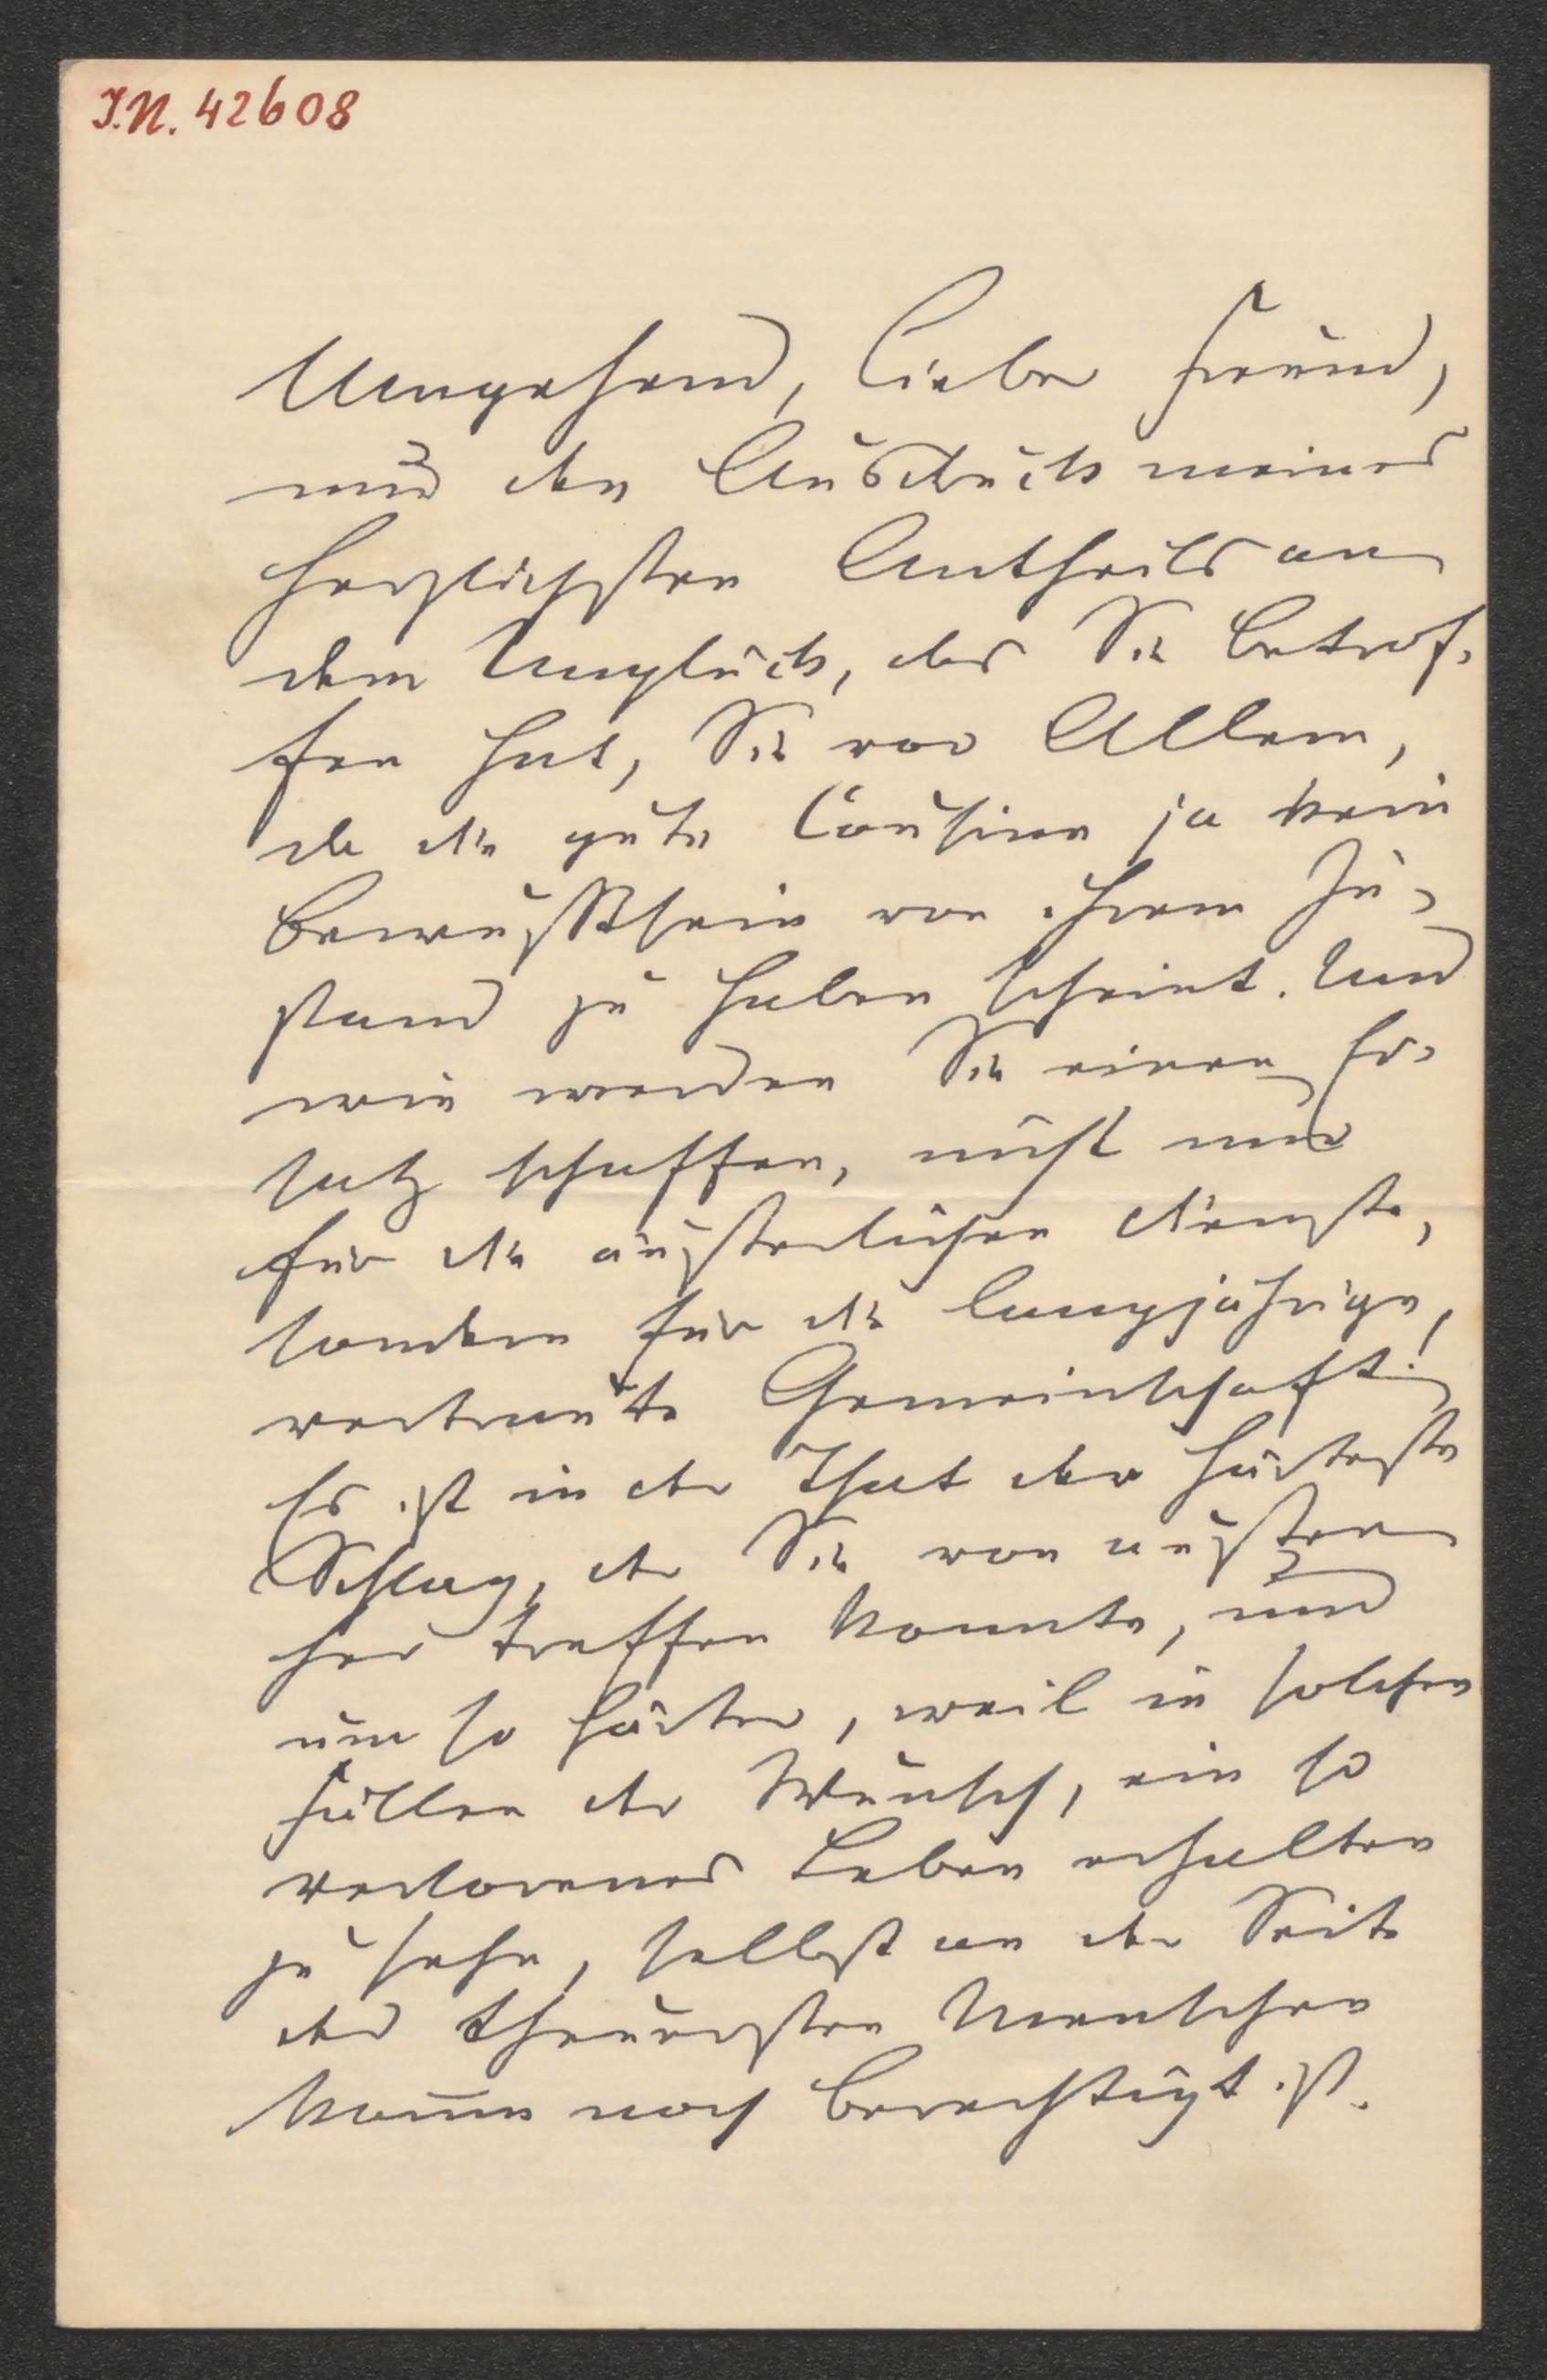 I.N. 42608
Umgehend, lieber Freund,
nur den Ausdruck meines
herzlichsten Antheils an
dem Unglück, das Sie betrof-
fen hat, Sie vor Allem,
da die gute Cousine ja kein
Bewußtsein von ihrem Zu-
stand zu haben scheint. Und
wie werden Sie einen Er-
satz schaffen, nicht nur
für die äußerlichen Dienste,
sondern für die langjährige,
vertraute Gemeinschaft!
Es ist in der That der härteste
Schlag, der Sie von außen
her treffen konnte, und
um so härter, weil in solchen
Fällen der Wunsch, ein so
verlorenes Leben erhalten
zu sehn, selbst an der Seite
des theuersten Menschen
kaum noch berechtigt ist.